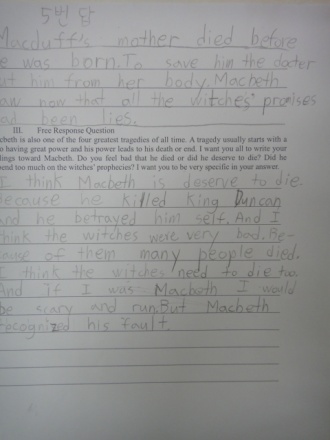 5번 답
Macduff's mother died before
e was born. To save him the docter
ut him from her body. Macbeth
aw now that all the witches' promises
ad been lies.
III. Free Response Question
cbeth is also one of the four greatest tragedies of all time. A tragedy usually starts with a
o having great power and his power leads to his death or end. I want you all to write your
lings toward Macbeth. Do you feel bad that he died or did he deserve to die? Did he
pend too much on the witches' prophecies? I want you to be very specific in your answer.
I think Macbeth is deserve to die.
Because he killed King Duncan
and he betrayed him self. And I
think the witches were very bad. Be-
cause of them many people died.
I think the witches need to die too.
And if I was Macbeth I would
be scary and run. But Macbeth
recognized his fault.